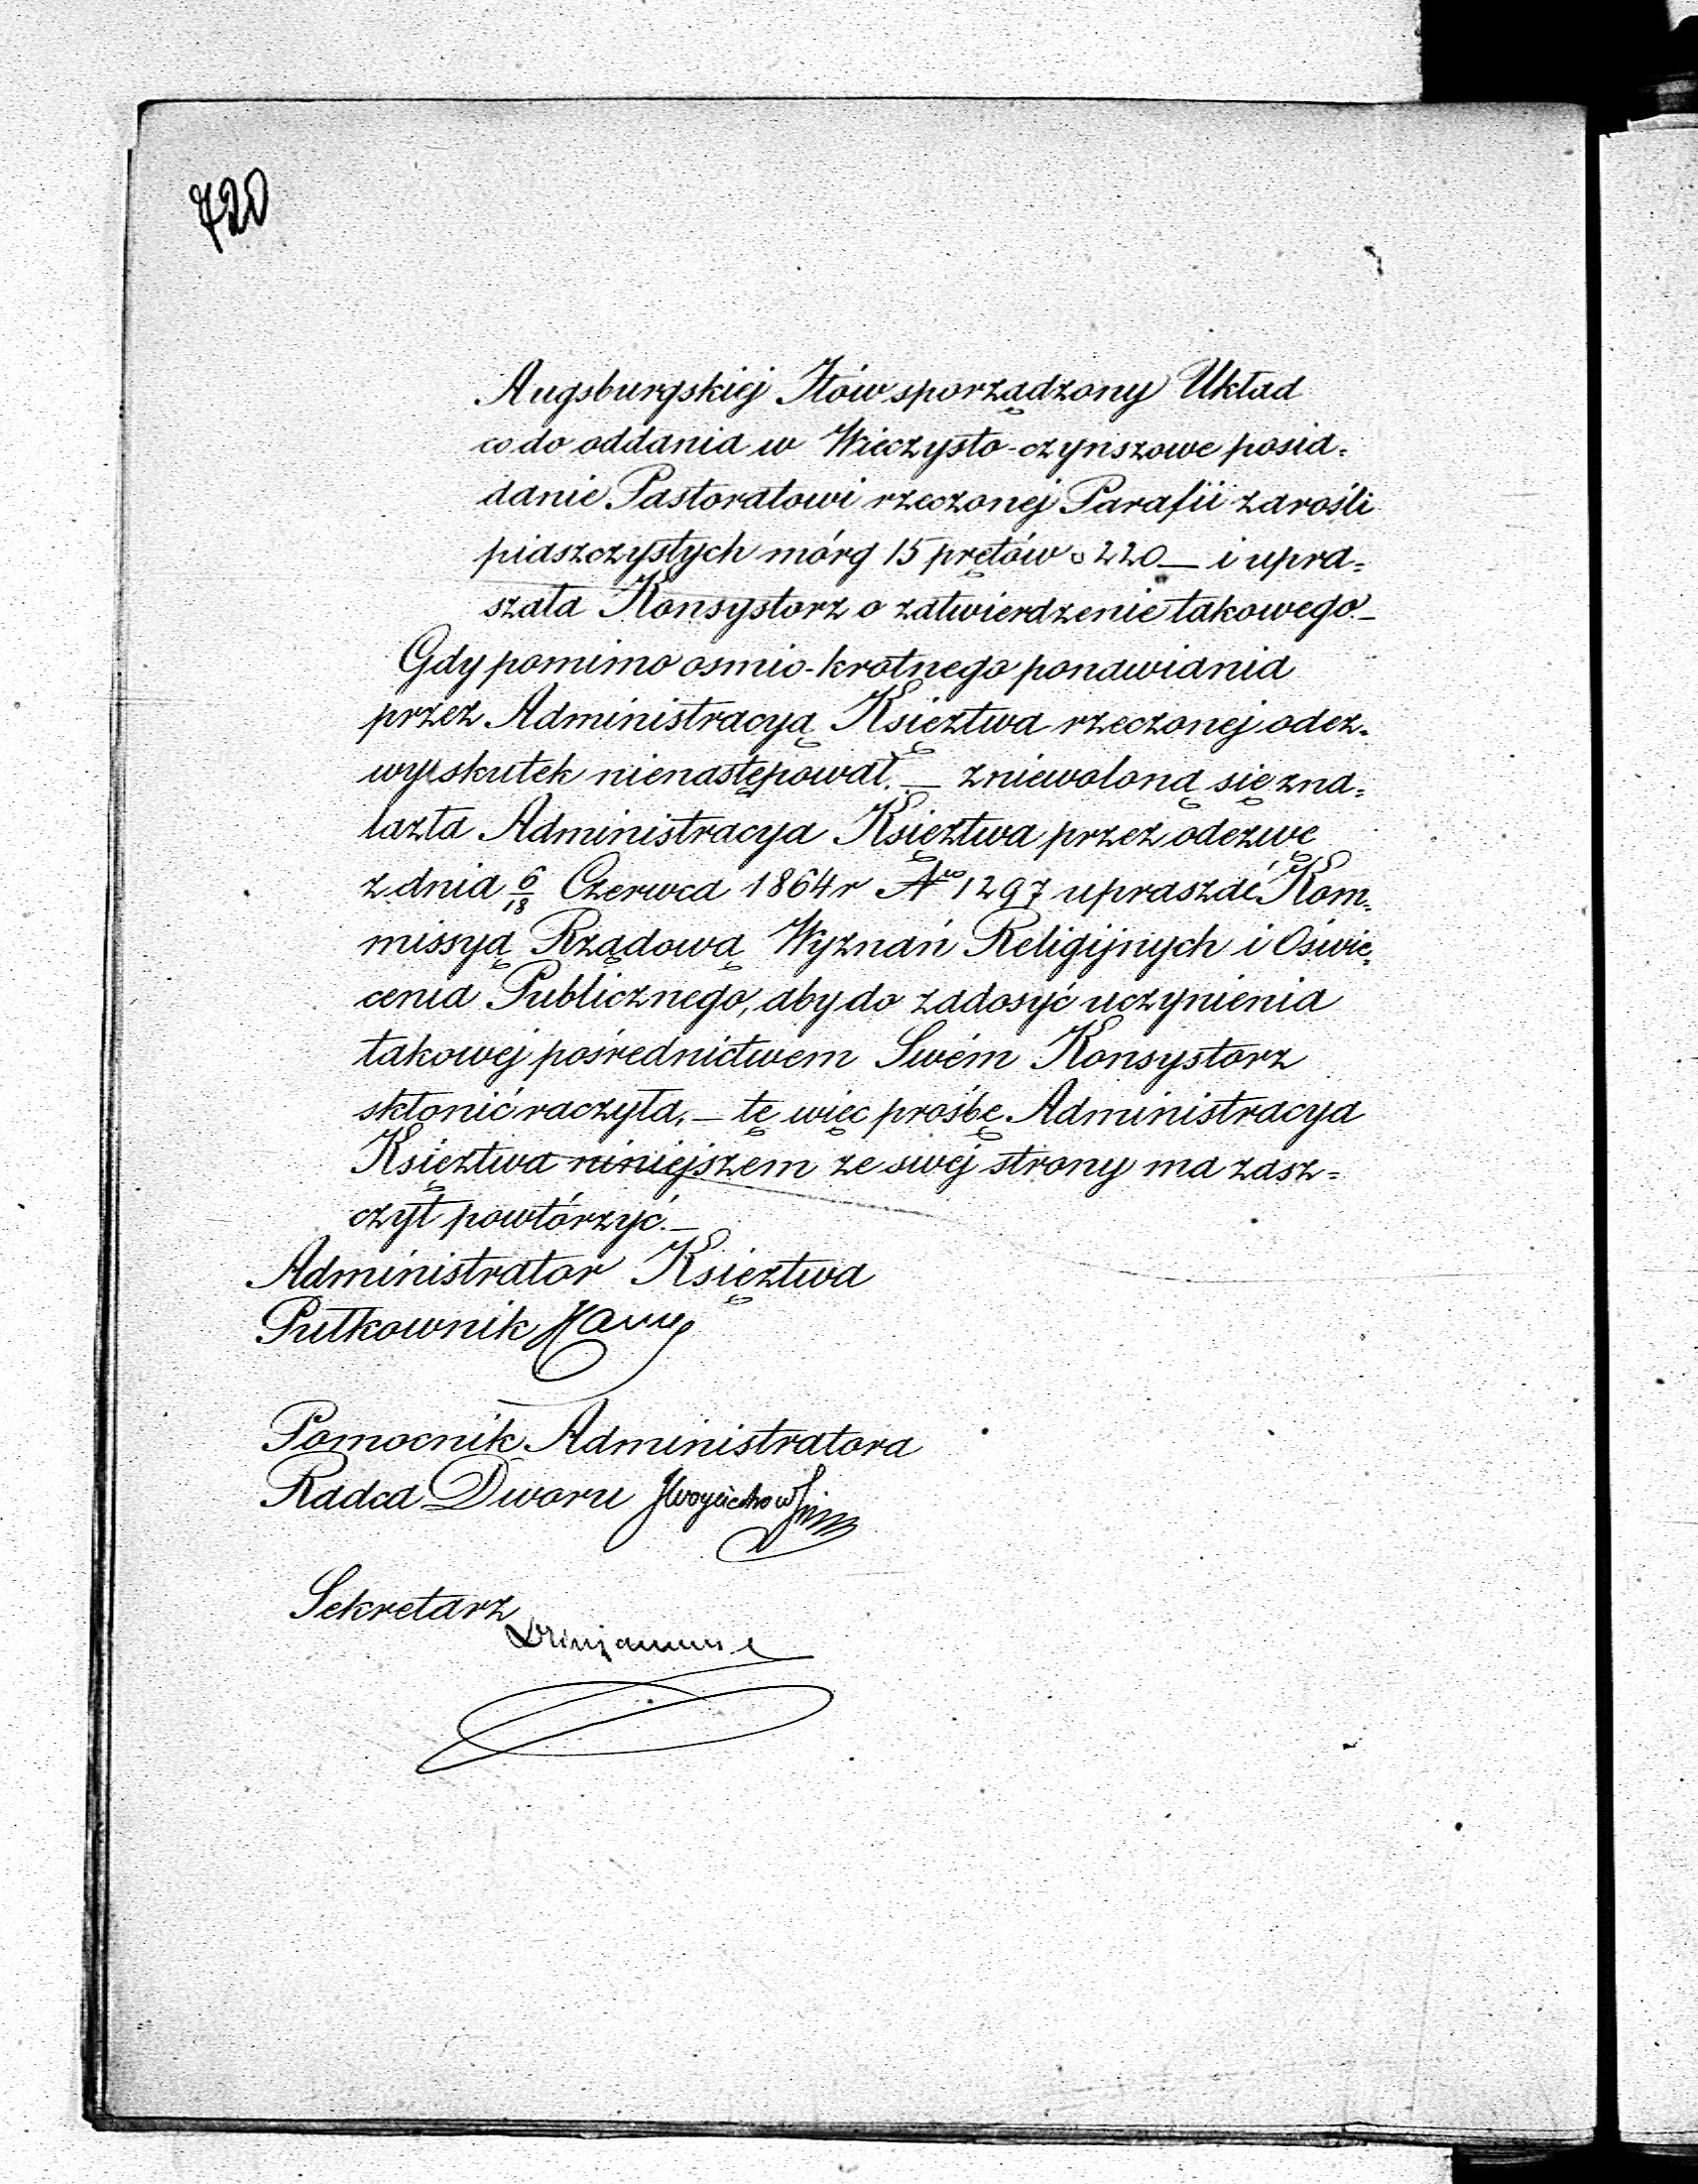 720
Augsburgskiej Iłów sporządzony Układ
co do oddania w Wieczysto-czynszowe posia=
danie Pastoratowi rzeczonej Parafii zarośli
piaszczystych mórg 15 prętów □ 220 — i upra=
szała Konsystorz o zatwierdzenie takowego.—
Gdy pomimo osmio-krotnego ponawiania
przez Administracyą Księztwa rzeczonej odez=
wy skutek nienastępował. — zniewoloną się zna=
lazła Administracya Księztwa przez odezwę
z dnia 6/18 Czerwca 1864 r No 1297 upraszać Kom=
missyą Rządową Wyznań Religijnych i Oświe=
cenia Publicznego, aby do zadosyć uczynienia
takowej pośrednictwem Swém Konsystorz
skłonić raczyła. — tę więc prośbę Administracya
Księztwa niniejszem ze swej strony ma zasz=
czyt powtórzyć.—
Administrator Księztwa
Pułkownik
Pomocnik Administratora
Radca Dworu
Sekretarz